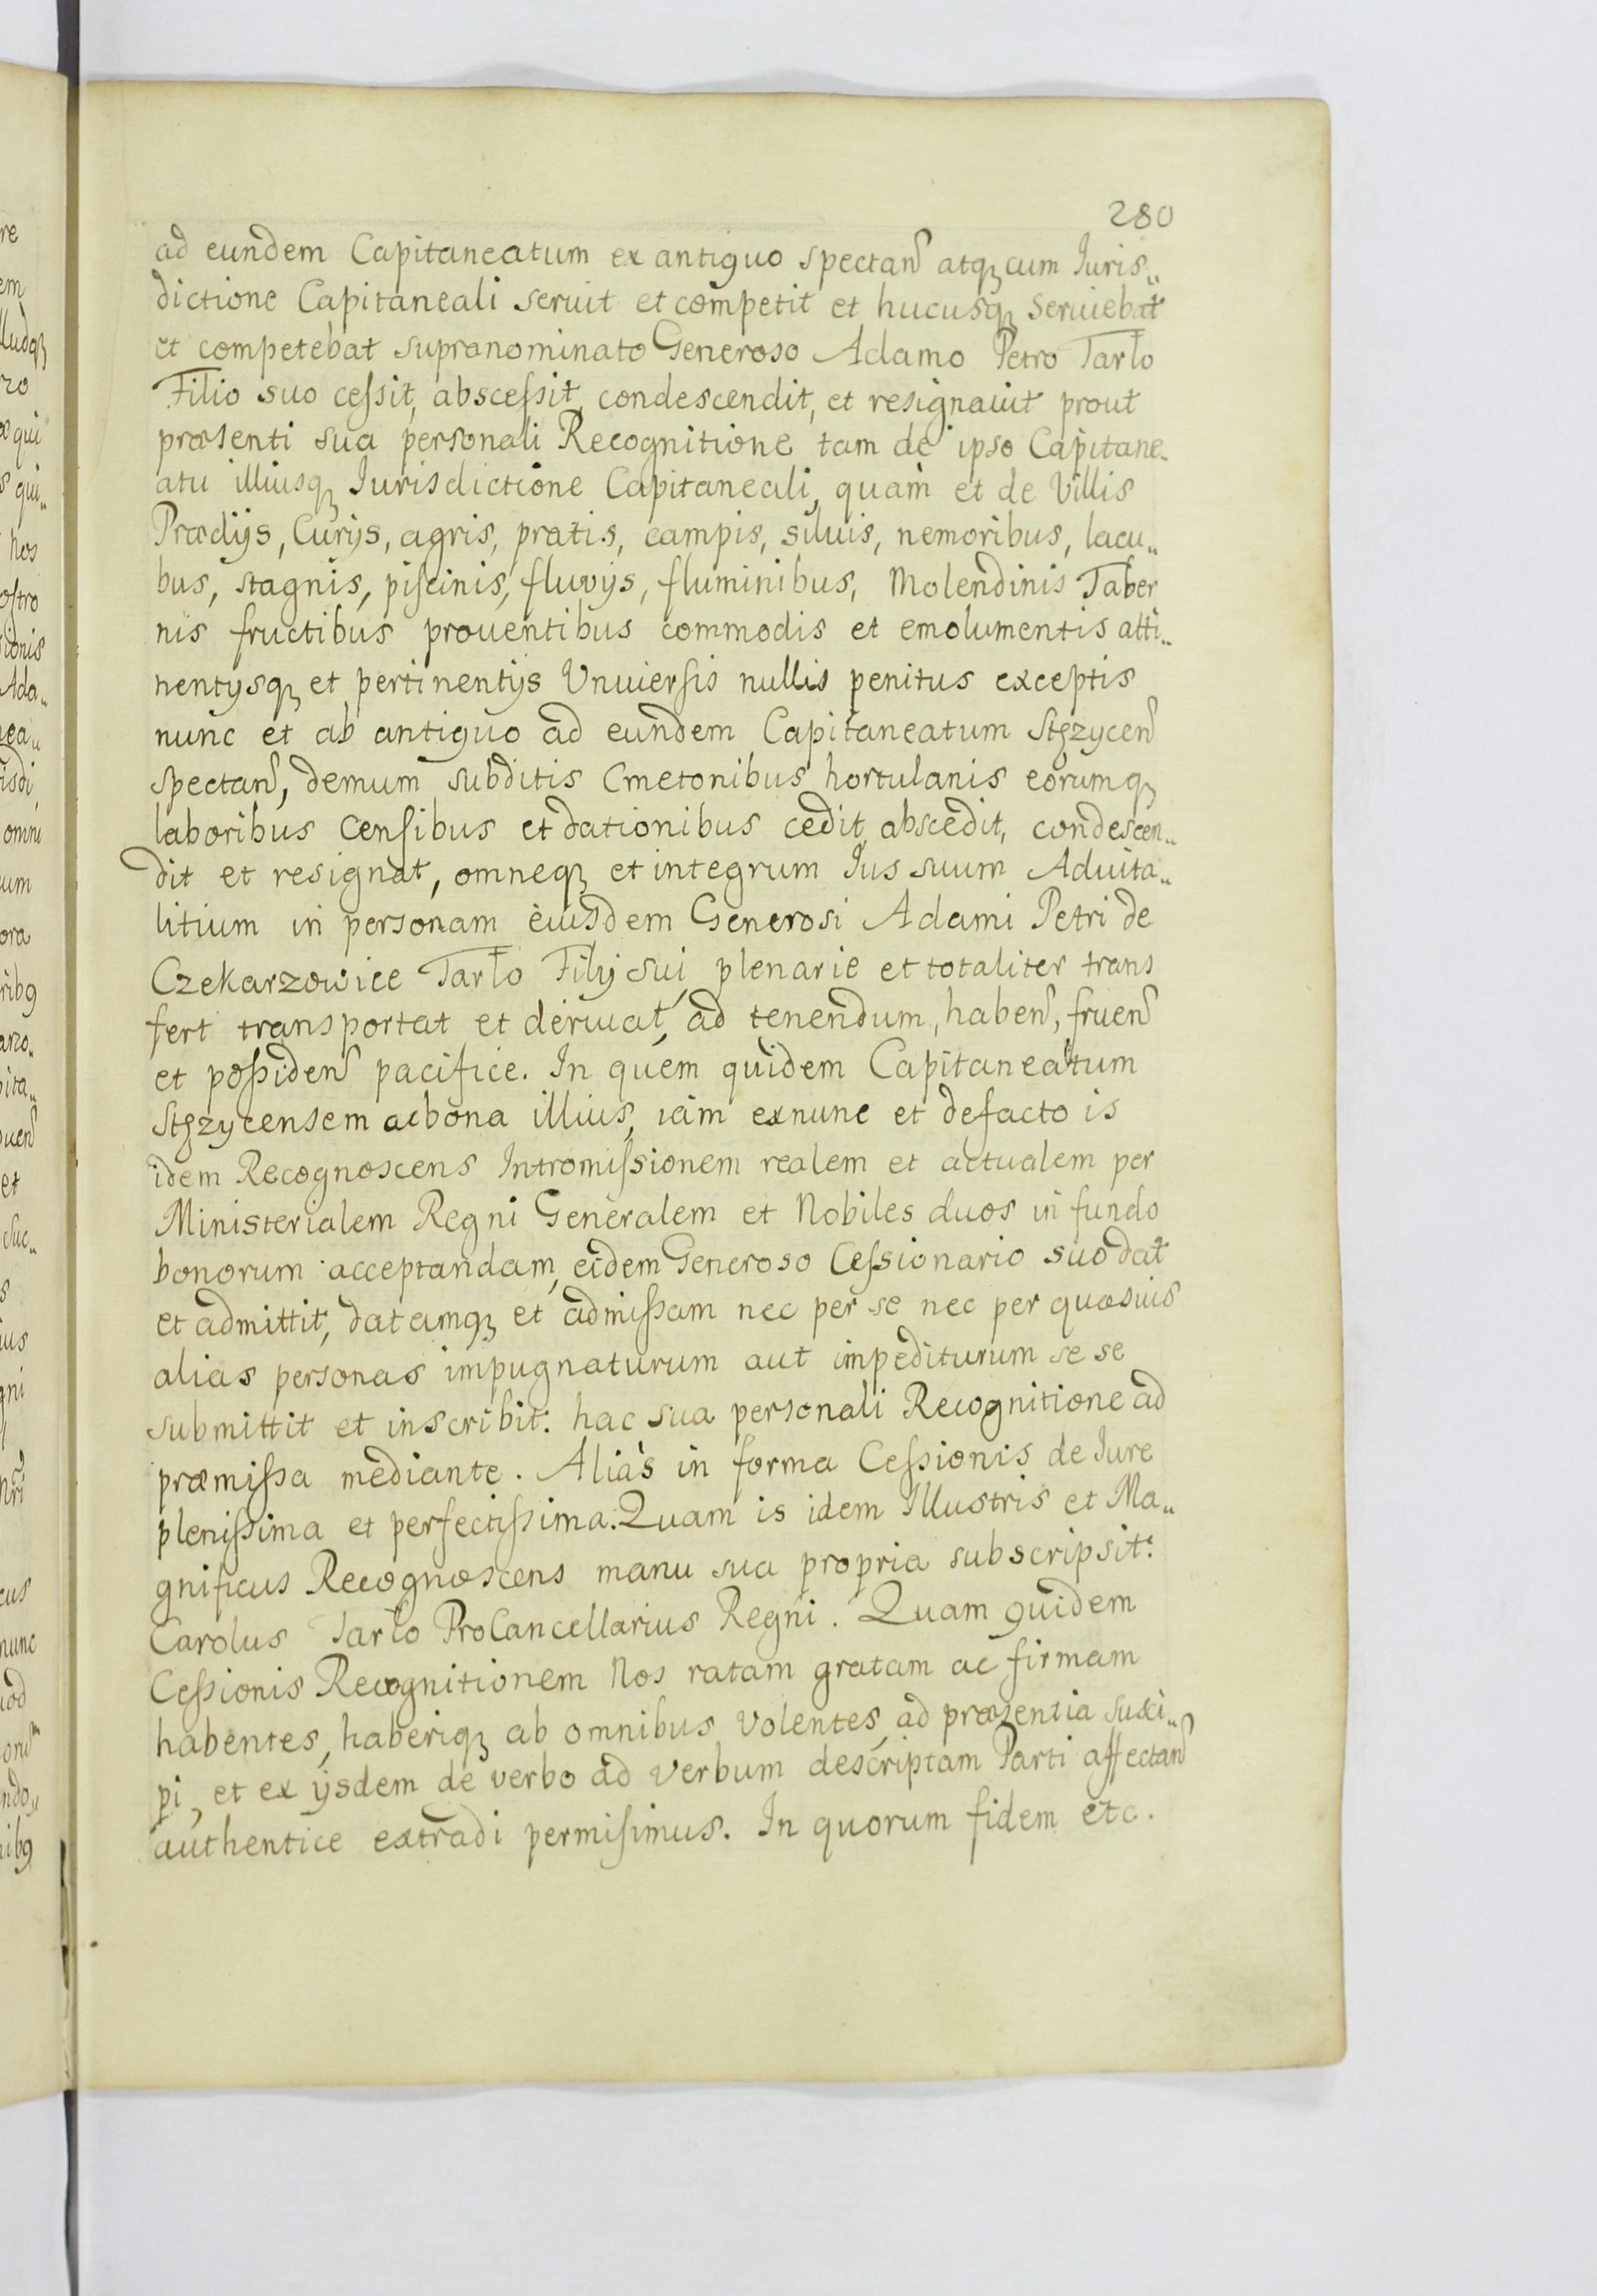 280
ad eundem Capitaneatum ex antiquo spectan̄ atqꝫ cum Iuris„
dictione Capitaneali seruit et competit et hucusqꝫ seruiebat
et competebat supranominato Generoso Adamo Petro Tarło
Filio suo ceſsit, absceſsit, condescendit, et resignauit prout
præsenti sua personali Recognitione tam de ipso Capitane„
atu illiusqꝫ Iurisdictione Capitaneali, quam et de Villis
Prædijs, Curijs, agris, pratis, campis, siluis, nemoribus, lacu„
bus, stagnis, piſcinis, fluvijs, fluminibus, Molendinis Taber
nis fructibus prouentibus commodis et emolumentis atti„
nentijsqꝫ et pertinentijs Vniuerſis nullis penitus exceptis
nunc et ab antiquo ad eundem Capitaneatum Stęzycen̄
spectan̄, demum subditis Cmetonibus hortulanis eorumqꝫ
laboribus Cenſibus et dationibus cedit, abscedit, condescen„
dit et resignat, omneqꝫ et integrum Ius suum Aduita„
litium in personam eiusdem Generosi Adami Petri de
Czekarzowice Tarło Filij sui, plenarie et totaliter trans
fert transportat et deriuat, ad tenendum, haben̄, fruen̄
et poſsiden̄ pacifice. In quem quidem Capitaneatum
Stęzycensem ac bona illius, iam ex nunc et de facto is
idem Recognoscens Intromiſsionem realem et actualem per
Ministerialem Regni Generalem et Nobiles duos in fundo
bonorum acceptandam, eidem Generoso Ceſsionario suo dat
et admittit, datamqꝫ et admiſsam nec per se nec per quasuis
alias personas impugnaturum aut impediturum se se
submittit et inscribit: hac sua personali Recognitione ad
præmiſsa mediante. Alias in forma Ceſsionis de Iure
pleniſsima et perfectiſsima. Quam is idem Illustris et Ma„
gnificus Recognoscens manu sua propria subscripsit:
Carolus Tarło ProCancellarius Regni. Quam quidem
Ceſsionis Recognitionem Nos ratam gratam ac firmam
habentes, haberiqꝫ ab omnibus volentes, ad præsentia susci„
pi, et ex ijsdem de verbo ad verbum descriptam Parti affectan̄
authentice extradi permiſimus. In quorum fidem etc.